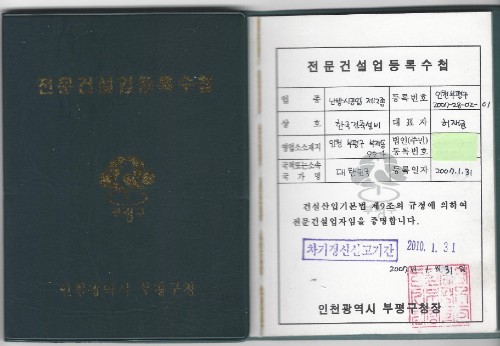 전문건설업등록수첩
부평구
인천광역시 부평구청장
전문건설업등록수첩
업 종 난방시공업 제2종 등록번호 인천 부평구 2007-28-02-01
상 호 한국건축설비 대 표 자
영업소소재지 인천 부평구 법인(주민)등록번호
국적또는소속국가명 대한민국 등록일자 2007.1.31
건설산업기본법 제9조의 규정에 의하여
전문건설업자임을 증명합니다.
차기갱신신고기간 2010. 1. 31
2007. 1. 31
인천광역시 부평구청장